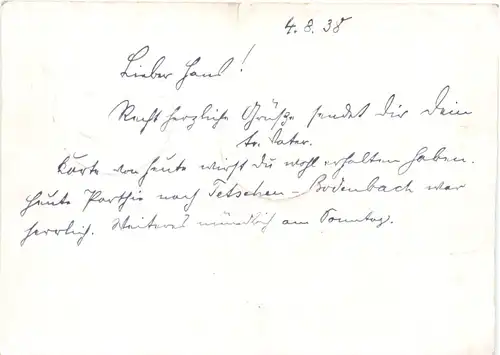 4.8.38
Lieber Hans!
Recht herzliche Grüße sendet Dir Dein
tr. Vater.
Karte von heute wirst du wohl erhalten haben.
Heute Parthie nach Tetschen-Bodenbach war
herrlich. Weiteres mündlich am Sonntag.